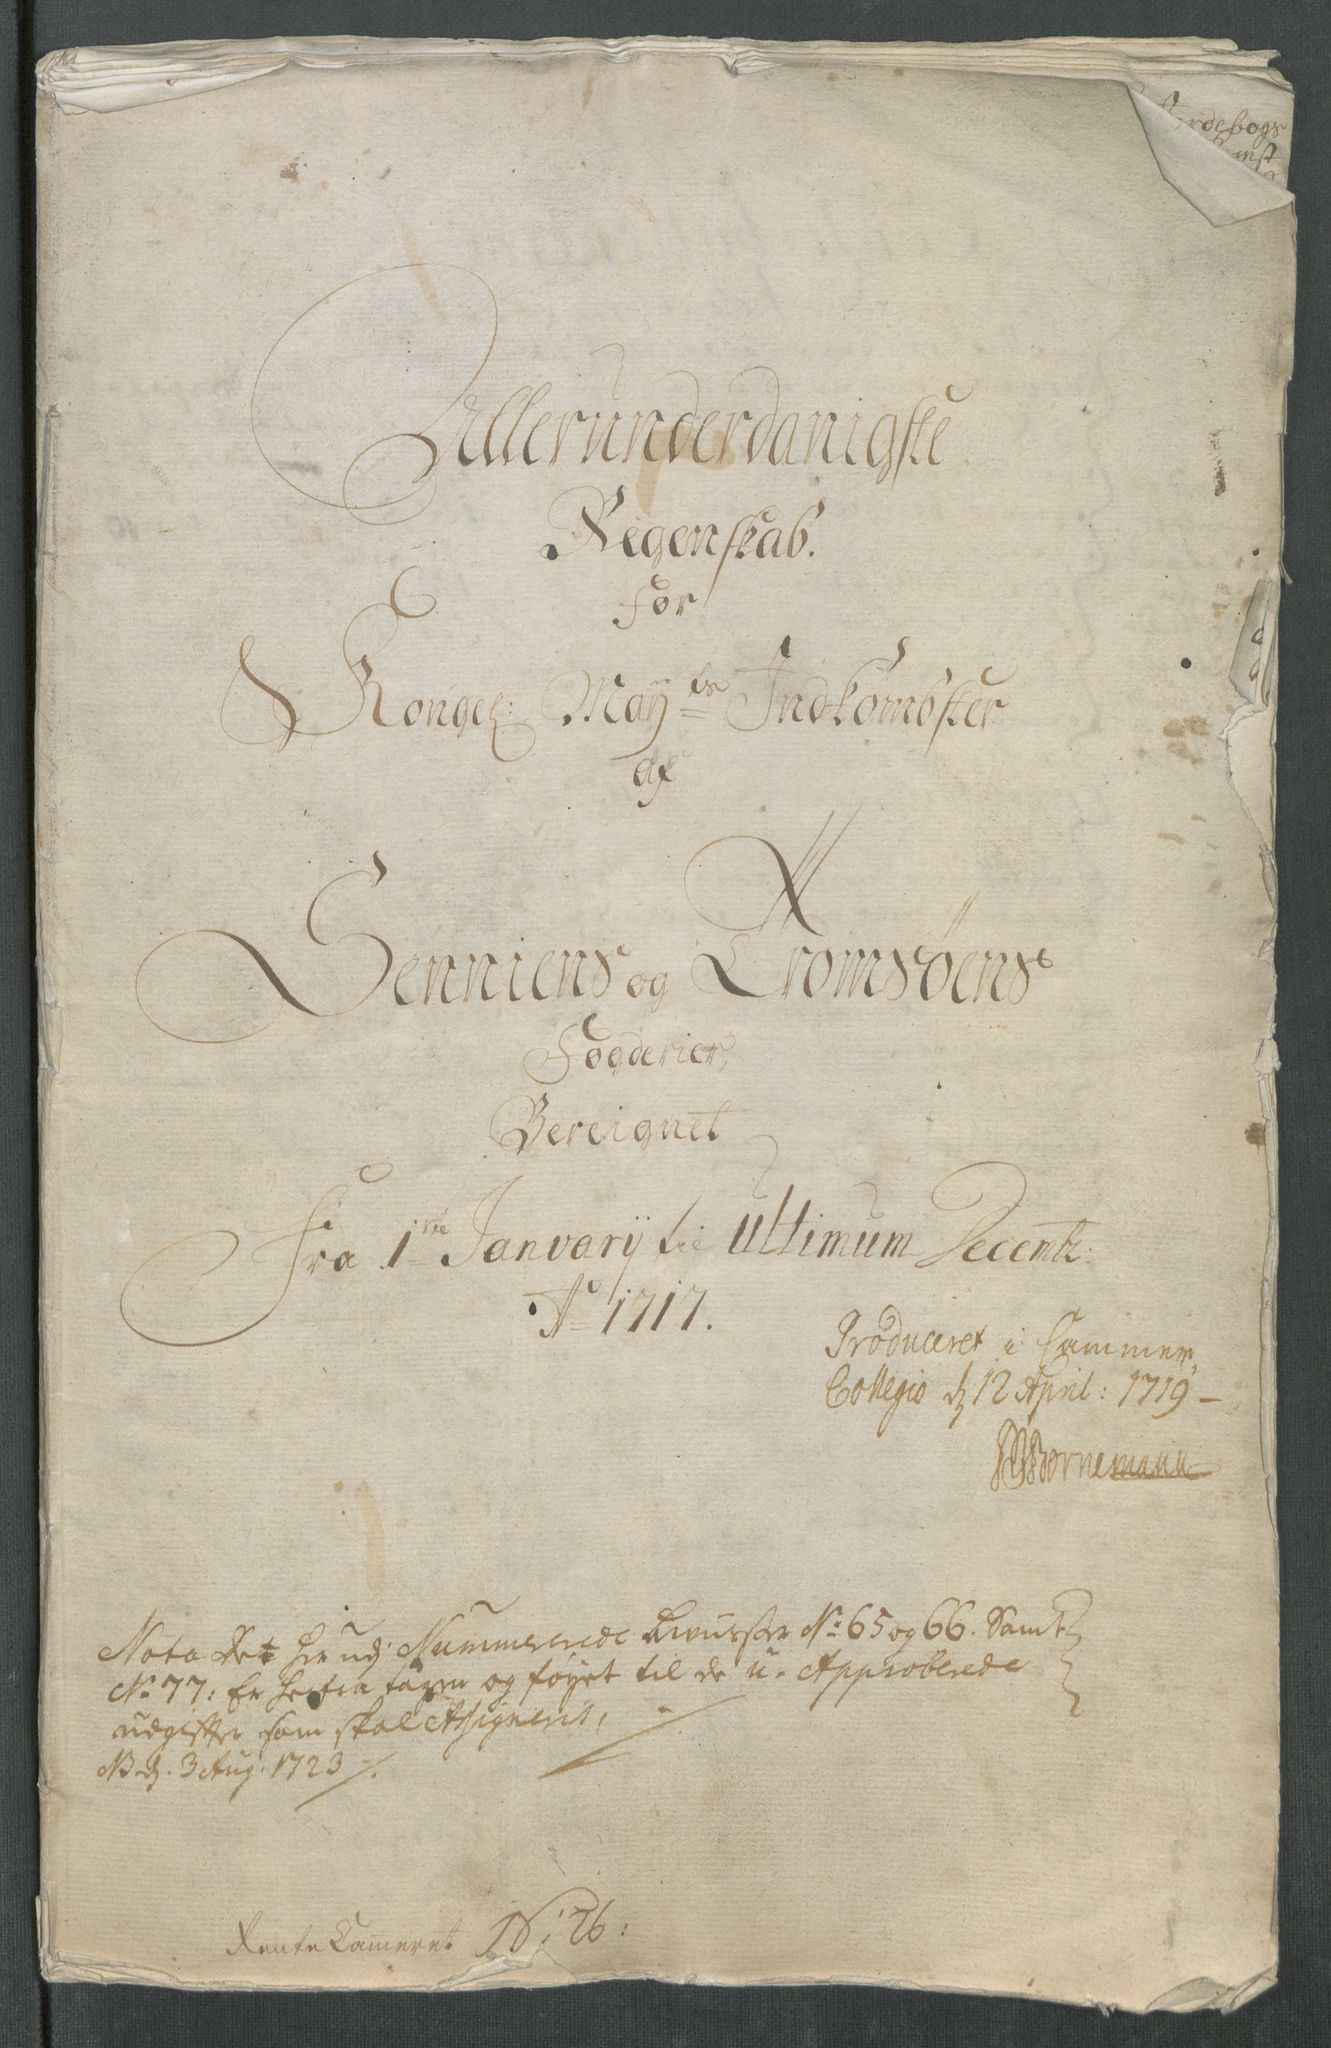 Jordebogs
Allerunderdanigste
Regenskab.
for
Kongel: Mayts Indkombster
af
Senniens og Tromsøens
Fogderier,
Bereignet
Fra 1ste January til Ultimum Decembr:
Ao 1717.
Produceret i Cammer
Collegio d 12 April: 1719 –
Bornemann
Nota Det her udj Nummererede No: 65 og 66. Samt
No 77: Er herfra tagen og føyet til de u-Approberede
udgifter som skal Assigneris,
NB d. 3 Aug. 1723
Rente Cammeret